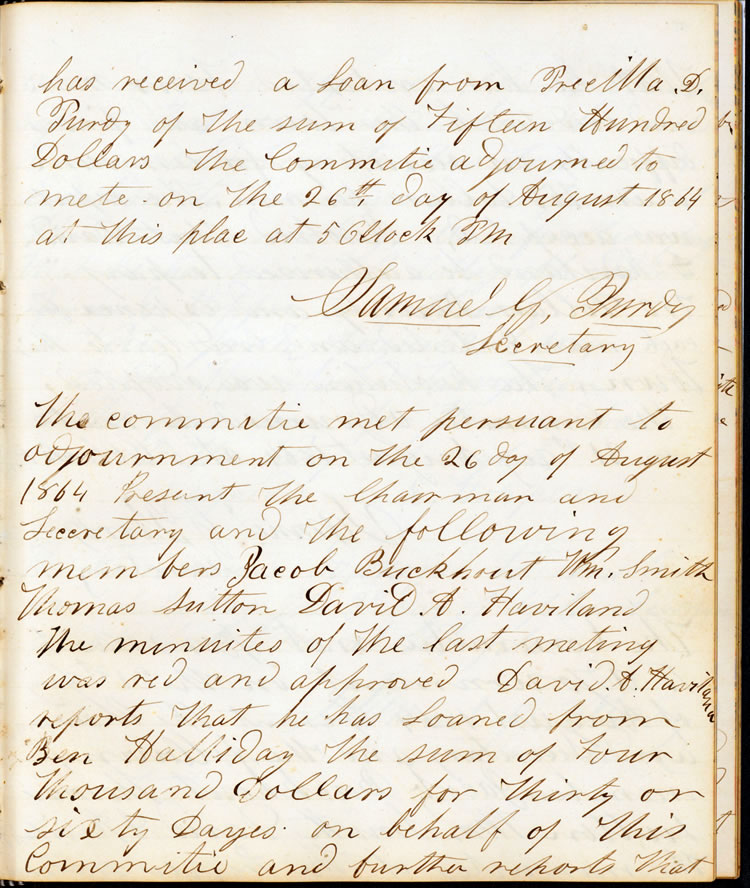 has received a Loan from Precilla D.
Purdy of the sum of Fifteen Hundred
Dollars The Committie adjourned to
mete on the 26th day of August 1864
at this plac at 5 OClock Pm
Samuel G, Purdy
Secretary
The committie met persuant to
adjournment on the 26 day of August
1864 Present the Chairman and
Seccretary and the following
members Jacob Buckhout Wm. Smith
Thomas Sutton David A. Haviland
The minuites of the last meting
was red and approved David A. Haviland
reports that he has Loaned from
Ben Halliday the sum of Four
Thousand Dollars for thirty or
sixty Dayes on behalf of this
Committie and further reports that